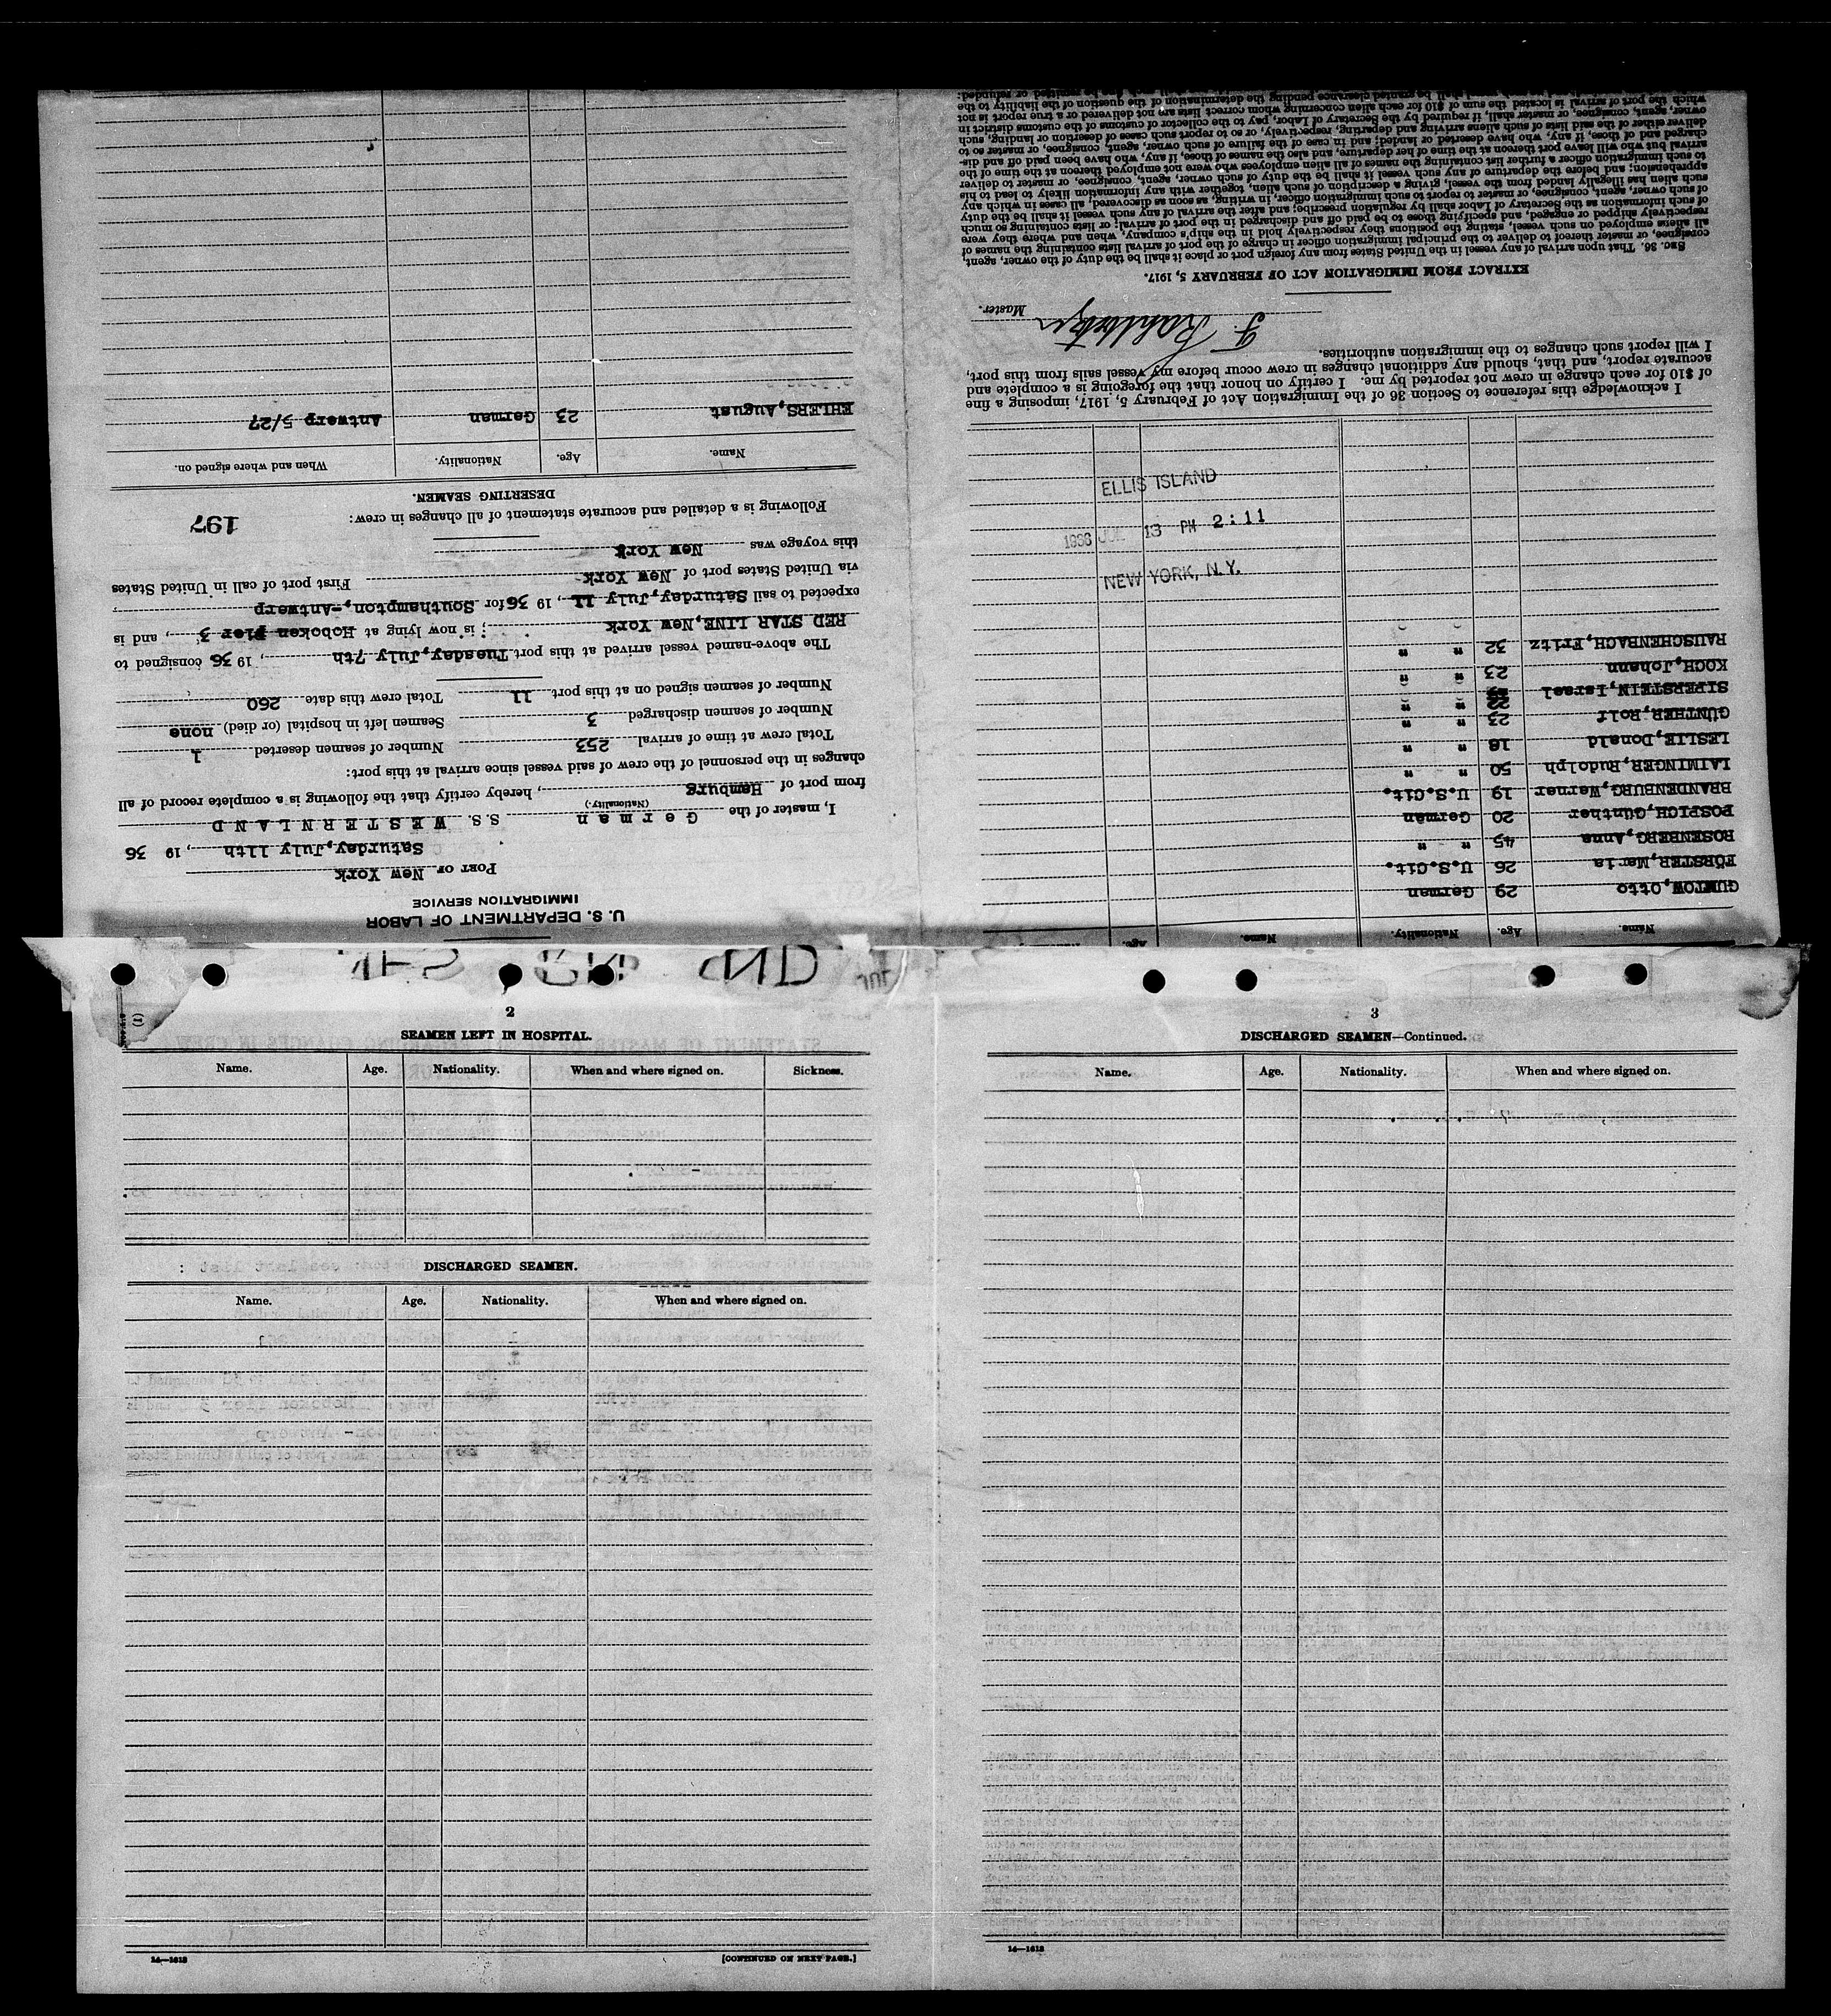 U. S. DEPARTMENT OF LABOR
IMMIGRATION SERVICE
PORT OF New York
Saturday, July 11th, 19 36
I, master of the German S. S. WESTERNLAND
(Nationality.)
from port of Hamburg, hereby certify that the following is a complete record of all
changes in the personnel of the crew of said vessel since arrival at this port:
Total crew at time of arrival 253 Number of seamen deserted 1
Number of seamen discharged 3 Seamen left in hospital (or died) none
Number of seamen signed on at this port 11 Total crew this date 260
The above-named vessel arrived at this port Tuesday, July 7th, 19 36 consigned to
RED STAR LINE, New York; is now lying at Hoboken Pier 3, and is
expected to sail Saturday, July 11, 19 36 for Southampton,-Antwerp
via United States port of New York First port of call in United States
this voyage was New York
Following is a detailed and accurate statement of all changes in crew:
197
DESERTING SEAMEN.
Name. Age. Nationality. When and where signed on.
EHLERS, August 23 German Antwerp 5/27
Name. Age. Nationality. Name. Age.
GUMTOW, Otto 29 German
FÖRSTER, Maria 26 U.S.Cit.
ROSENBERG, Anna 45 " "
POSPICH, Günther 20 German
BRANDENBURG, Werner 19 U.S.Cit.
LAIMINGER, Rudolph 50 " "
LESLIE, Donald 18 " "
GÜNTHER, Rolf 23 " "
SIPERSTEIN, Israel 22 " "
KOCH, Johann 23 " "
RAUSCHENBACH, Fritz 32 " "
ELLIS ISLAND
1936 JUL 13 PM 2:11
NEW YORK, N.Y.
I acknowledge this reference to Section 36 of the Immigration Act of February 5, 1917, imposing a fine
of $10 for each change in crew not reported by me. I certify on honor that the foregoing is a complete and
accurate report, and that, should any additional changes in crew occur before my vessel sails from this port,
I will report such changes to the immigration authorities.
Master.
EXTRACT FROM IMMIGRATION ACT OF FEBRUARY 5, 1917.
SEC. 36. That upon arrival of any vessel in the United States from any foreign port or place it shall be the duty of the owner, agent,
consignee, or master thereof to deliver to the principal immigration officer in charge of the port of arrival lists containing the names of
all aliens employed on such vessel, stating the positions they respectively hold in the ship's company, when and where they were
respectively shipped or engaged, and specifying those to be paid off and discharged in the port of arrival; or lists containing so much
of such information as the Secretary of Labor shall by regulation prescribe; and after the arrival of any such vessel it shall be the duty
of such owner, agent, consignee, or master to report to such immigration officer, in writing, as soon as discovered, all cases in which any
such alien has illegally landed from the vessel, giving a description of such alien, together with any information likely to lead to his
apprehension; and before the departure of any such vessel it shall be the duty of such owner, agent, consignee, or master to deliver
to such immigration officer a further list containing the names of all alien employees who were not employed thereon at the time of the
arrival but who will leave port thereon at the time of her departure, and also the names of those, if any, who have been paid off and dis-
charged and of those, if any, who have deserted or landed; and in case of the failure of such owner, agent, consignee, or master so to
deliver either of the said lists of such aliens arriving and departing, respectively, or so to report such cases of desertion or landing, such
owner, agent, consignee, or master shall, if required by the Secretary of Labor, pay to the collector of customs of the customs district in
which the port of arrival is located the sum of $10 for each alien concerning whom correct lists are not delivered or a true report is not
shall be granted clearance pending the determination of the question of the liability to the
2
SEAMEN LEFT IN HOSPITAL.
Name. Age. Nationality. When and where signed on. Sickness.
DISCHARGED SEAMEN.
Name. Age. Nationality. When and where signed on.
14—1618 [CONTINUED ON NEXT PAGE.]
3
DISCHARGED SEAMEN—Continued.
Name. Age. Nationality. When and where signed on.
14—1618